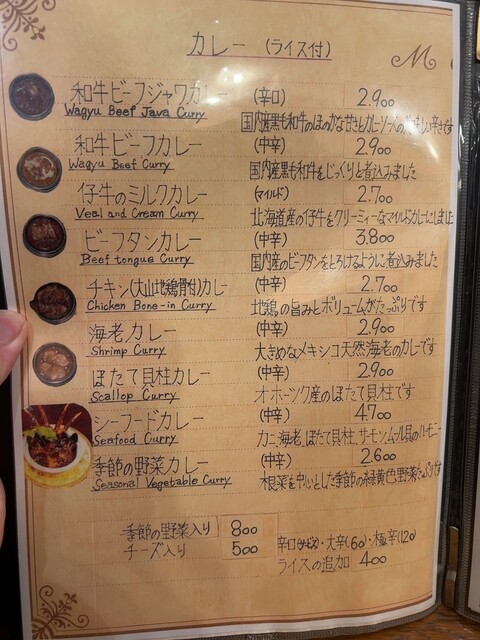 カレー (ライス付)
M
和牛ビーフジャワカレー (辛口) 2.900
Wagyu Beef Java Curry
国内産黒毛和牛のほのかな甘さと
和牛ビーフカレー (中辛) 2.900
Wagyu Beef Curry
国内産黒毛和牛をじっくりと煮込みました
仔牛のミルクカレー (マイルド) 2.700
Veal and Cream Curry
北海道産の仔牛をクリーミィーなマイルドカレーにしました
ビーフタンカレー (中辛) 3.800
Beef tongue Curry
国内産のビーフタンをとろけるように煮込みました
チキン(大山地鶏骨付)カレー (中辛) 2.700
Chicken Bone-in Curry
地鶏の旨みとボリュームがたっぷりです
海老カレー (中辛) 2.900
Shrimp Curry
大きめなメキシコ天然海老のカレーです
ほたて貝柱カレー (中辛) 2.900
Scallop Curry
オホーツク産のほたて貝柱です
シーフードカレー (中辛) 4.700
Seafood Curry
カニ、海老、ほたて貝柱、サーモン、ムール貝のハーモニー
季節の野菜カレー (中辛) 2.600
Seasonal Vegetable Curry
根菜を中心とした季節の緑黄色野菜たっぷりです
季節の野菜入り 800
チーズ入り 500
辛口 ・大辛(60)・極辛(120)
ライスの追加 400